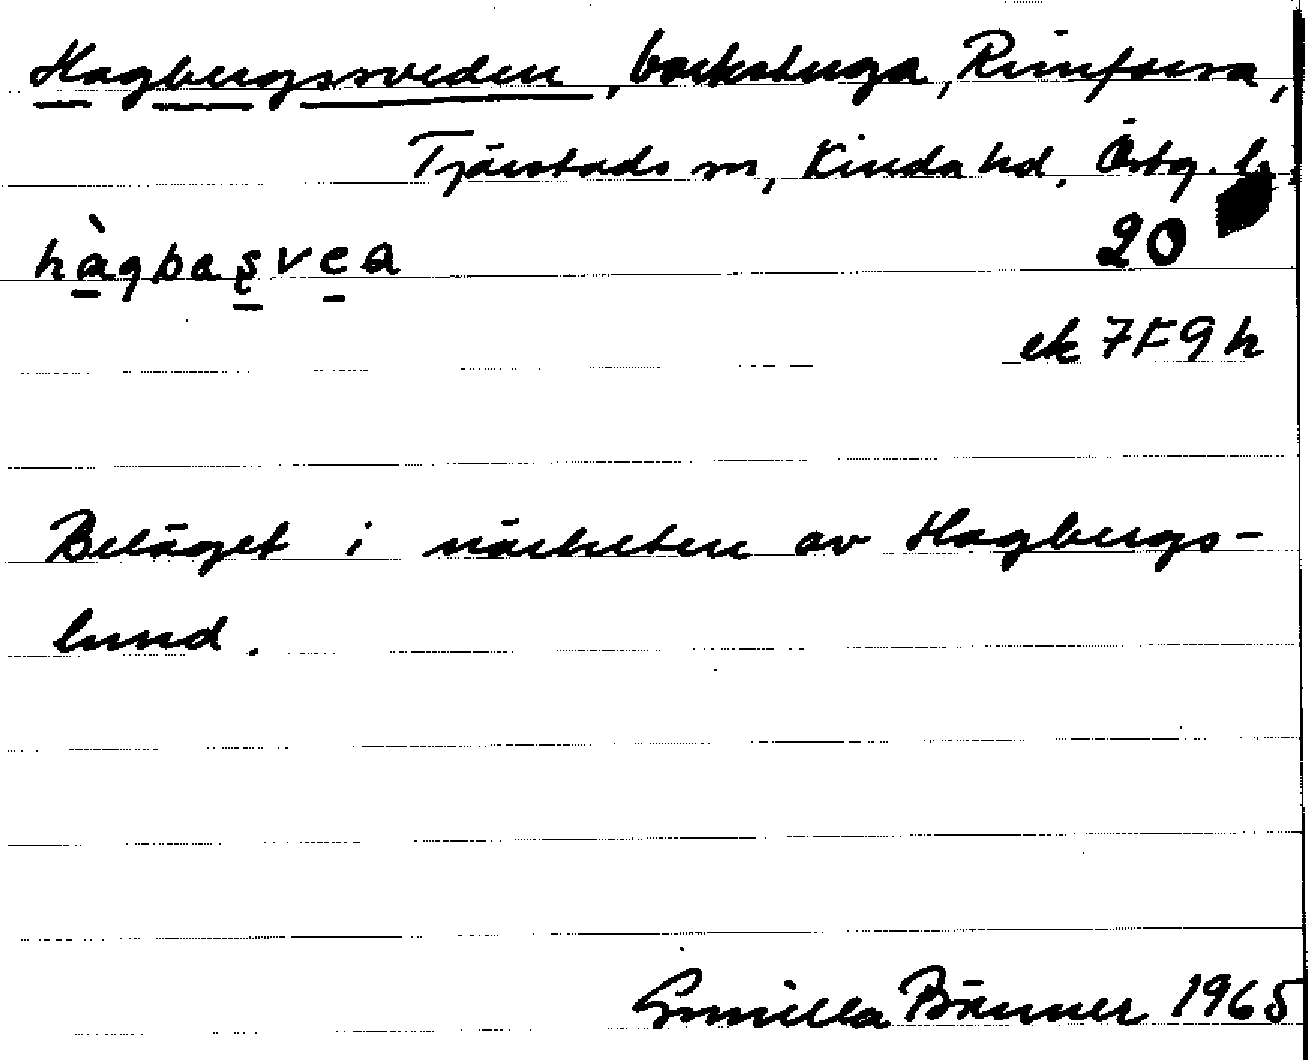 Hagbergssveden, backstuga, Rimforsa,
Tjärstads sn, Kinda hd, Östg. l.
hàgbasvea
20
ek 7F9h
Beläget i närheten av Hagbergs-
lund.
Gunilla Bränner 1965